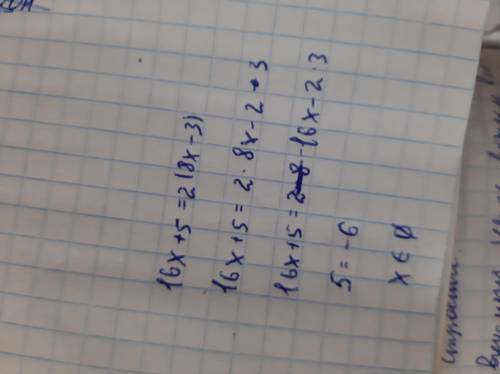 16x+5=2(8x-3)
16x+5=2·8x-2·3
16x+5=16x-2·3
5=-6
x∈∅